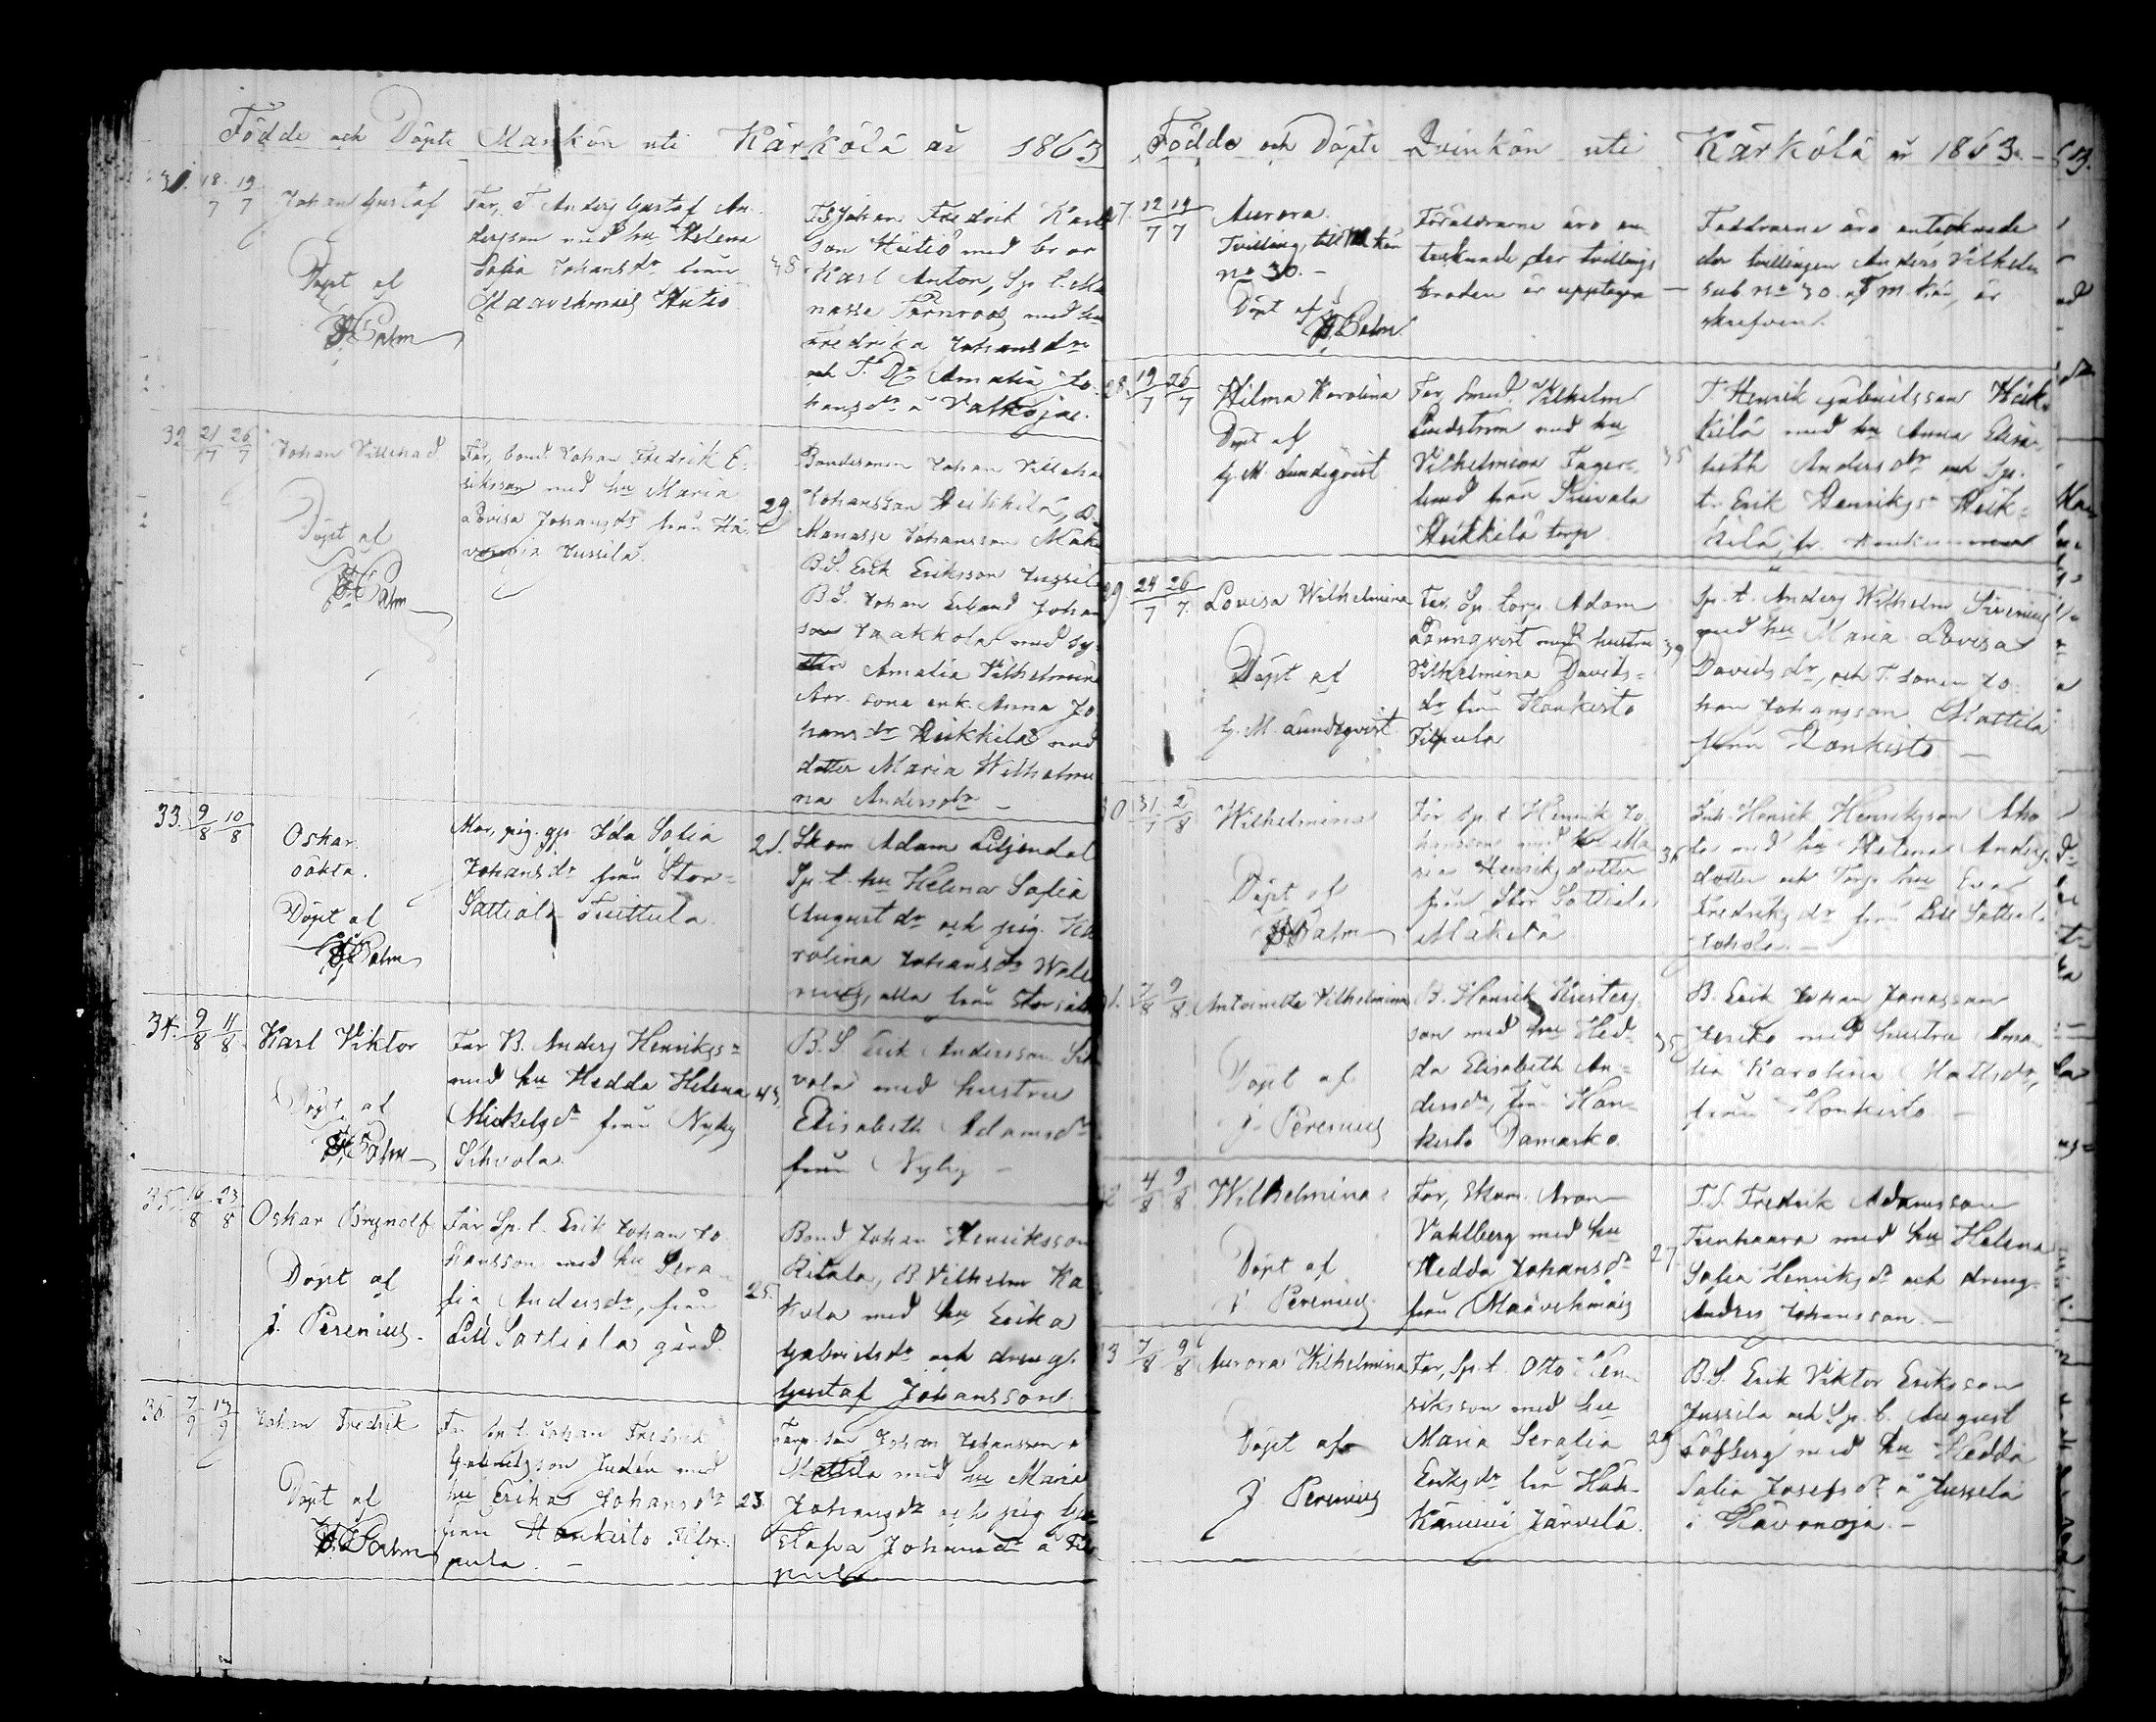 Födde och Döpte Mankön uti Kärkölä år 1863
31. 18/7 19/7 Johan Gustaf
Döpt af
Palm
Far, T. Anders Gustaf An-
dersson med hu Helena
Sofia Johansdr från
Maavehmais Hutiö
38
Johan Fredrik Karls
son Hutiö med bror
Karl Anton, Sp. t. Ma
nasse Törnroos med hu
Fredrika Johansdr
och T. Dr Amalia Jo-
hansdr a Valkojas.
32. 21/7 26/7 Johan Villehad
Döpt af
Palm
Far, bond. Johan Fredrik E-
riksson med hu Maria
Lovisa Johansdr från Hä-
Jussila.
29.
Bondesonen Johan Villeha
Johansson Heikkilä,
Manasse Johansson Mäke
B.S. Erik Eriksson Jussil
B.S. Johan Erland Johan
son Jaakkola med sy-
ster Amalia Vilhelmin
enk. Anna Jo
hansdr Heikkilä med
dotter Maria Wilhelmi
na Andersdr –
33. 9/8 10/8 Oskar
oäkta.
Döpt af
Palm
Mor, pig. Ida Sofia
Johansdr från Stor-
Sattiala Tuittula.
21.
Skom. Adam Liljendal
Sp. t. hu Helena Sofia
Augustdr och pig. Ka
rolina Johansdr Wale
nius, alla från Stor sat
34. 9/8 11/8 Karl Viktor
Döpt af
Palm
Far B. Anders Henrikss=
med hu Hedda Helena
Mickelsdr från Nyby
Sihvola.
43.
B.S. Erik Andersson Sih
vola med hustru
Elisabeth Adamsdr
från Nyby –
35. 16/8 23/8 Oskar Brynolf
Döpt af
J. Perenius.
Far Sp. t. Erik Johan Jo
hansson med hu Sera-
fia Andersdr, från
Lill Sattiala gård.
25.
Bond Johan Henriksson
Ritala, B. Vilhelm Ka
kola med hu Erika
Gabrielsdr och dreng.
Gustaf Johansson.
36. 7/9 13/9 Johan Fredrik
Döpt af
Palm
Far Sp. t. Johan Fredrik
Gabrielsson Judén med
hu Erika Johansdr
från Honkisto Filp-
pula. –
23.
Torp. son Johan Johansson
Mattila med hu Maria
Johansdr och pig Gu
stafva Johansdr a Filp
pula
Födde och Döpte Qvinkön uti Kärkölä år 1863. –
7. 12/7 19/7 Aurora.
Tvilling till M. kön
No 30. –
Döpt af
Palm.
Föräldrarne äro an-
tecknade der tvillings
broden är upptagen –
Faddrarne äro antecknade
der tvillingen Anders Vilhelm
sub No 30. af m. kön, är
skrefven.
28. 19/7 26/7 Hilma Karolina
Döpt af
G. M. Lundeqvist
Far, smed. Vilhelm
Lindström med hu
Vilhelmina Fager-
lund från
Heikkilä torp.
35
T. Henrik Gabrielsson Heik-
kilä med hu Anna Elisa-
beth Andersdr och Sp.
t. Erik Henrikss= Heik-
kilä, fr.
29 24/7 26/7 Lovisa Wilhelmina
Döpt af
G. M. Lundeqvist
Far, Sp. torp. Adam
Lönnqvist med hustru
Vilhelmina Davids-
dr från Honkisto
Filpula
39
Sp. t. Anders Wilhelm Sirenius
med hu Maria Lovisa
Davidsdr, och T. sonen Jo-
han Johansson Mattila
från Honkisto –
30 31/7 2/8 Wilhelmina
Döpt af
Palm
Far Sp. t. Henrik Jo
hansson med hu Ma
ria Henriksdotter
från Stor Sattiala
Mäkelä
36
Inh. Henrik Henriksson Aho
la med hu Helena Anders
dotter och Torp. hu Eva
Fredriksdr från Lill Sattiala
–
1. 7/8 9/8 Antoinetta Vilhelmina
Döpt af
J. Perenius
B. Henrik Kristers-
son med hu Hed-
da Elisabeth An-
dersdr, från Hon-
kisto Damasko.
35
B. Erik Johan Jonasson
med hustru Ama
lia Karolina Mattsdr,
från Honkisto –
2 4/8 9/8 Wilhelmina
Döpt af
J. Perenius.
Far, Skom. Aron
Vahlberg med hu
Hedda Johansdr
från Maavehmais
27
T.S. Fredrik Adamsson
med hu Helena
Sofia Henriksdr och dreng.
Anders Johansson. –
3 7/8 9/8 Aurora Wilhelmina
Döpt af
J Perenius
Far, Sp. t. Otto Hen-
riksson med hu
Maria Serafia
Eriksdr från Häh-
käniemi Järvelä.
29
B.S. Erik Viktor Eriksson
Jussila och Sp. t. August
Löfberg med hu Hedda
Sofia Josefsdr a Jussila
i Hävonoja. –